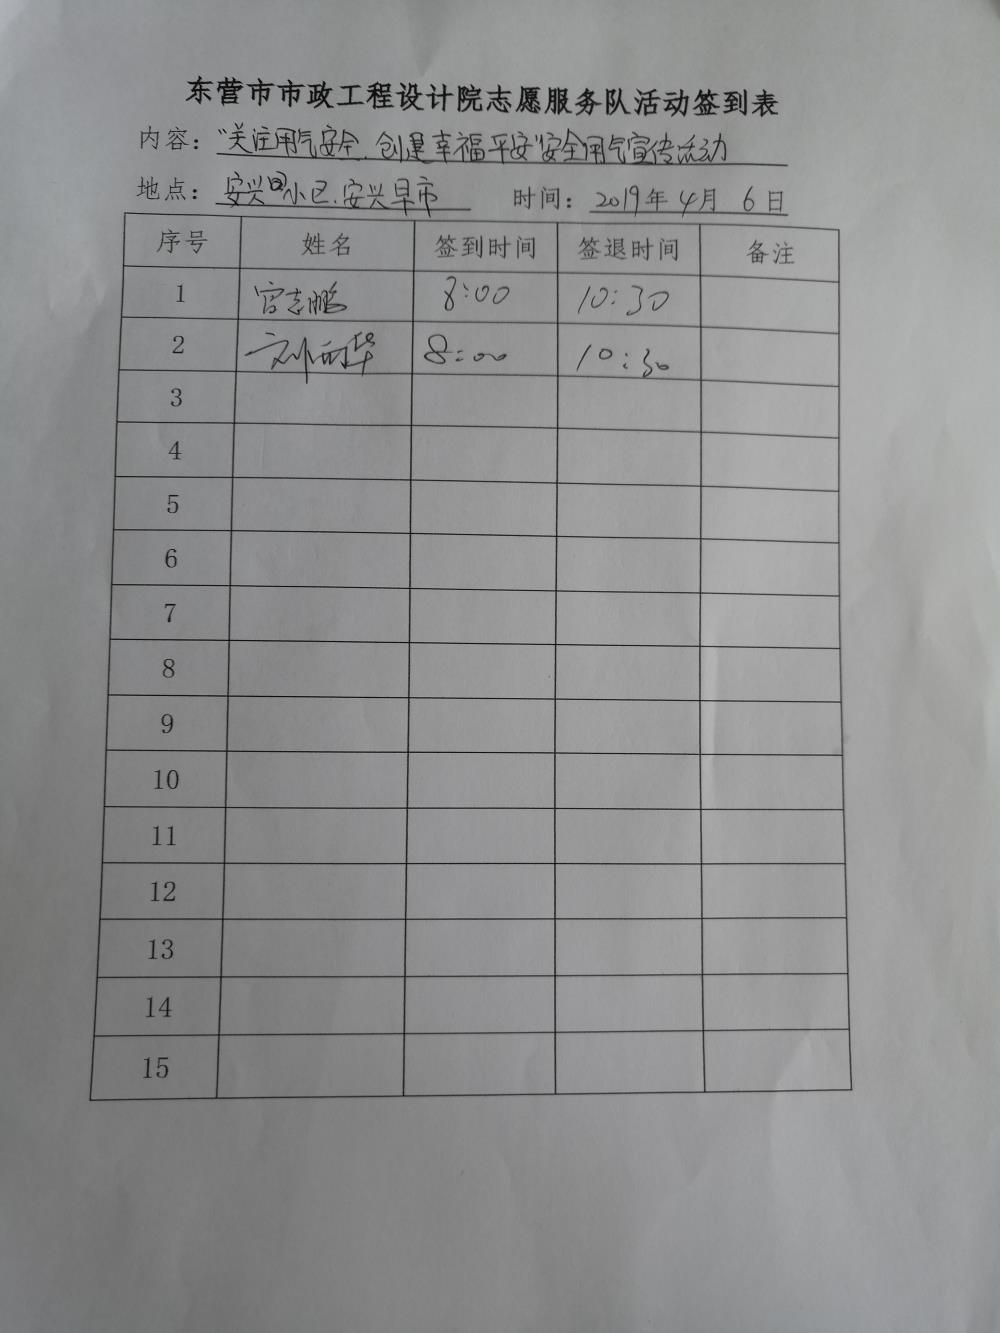 东营市市政工程设计院志愿服务队活动签到表
内容：“关注用气安全.创建幸福平安”安全用气宣传活动
地点：安兴小区.安兴早市 时间：2019年4月6日
序号 姓名 签到时间 签退时间 备注
1 宫志鹏 8:00 10:30
2 8:00 10:30
3
4
5
6
7
8
9
10
11
12
13
14
15